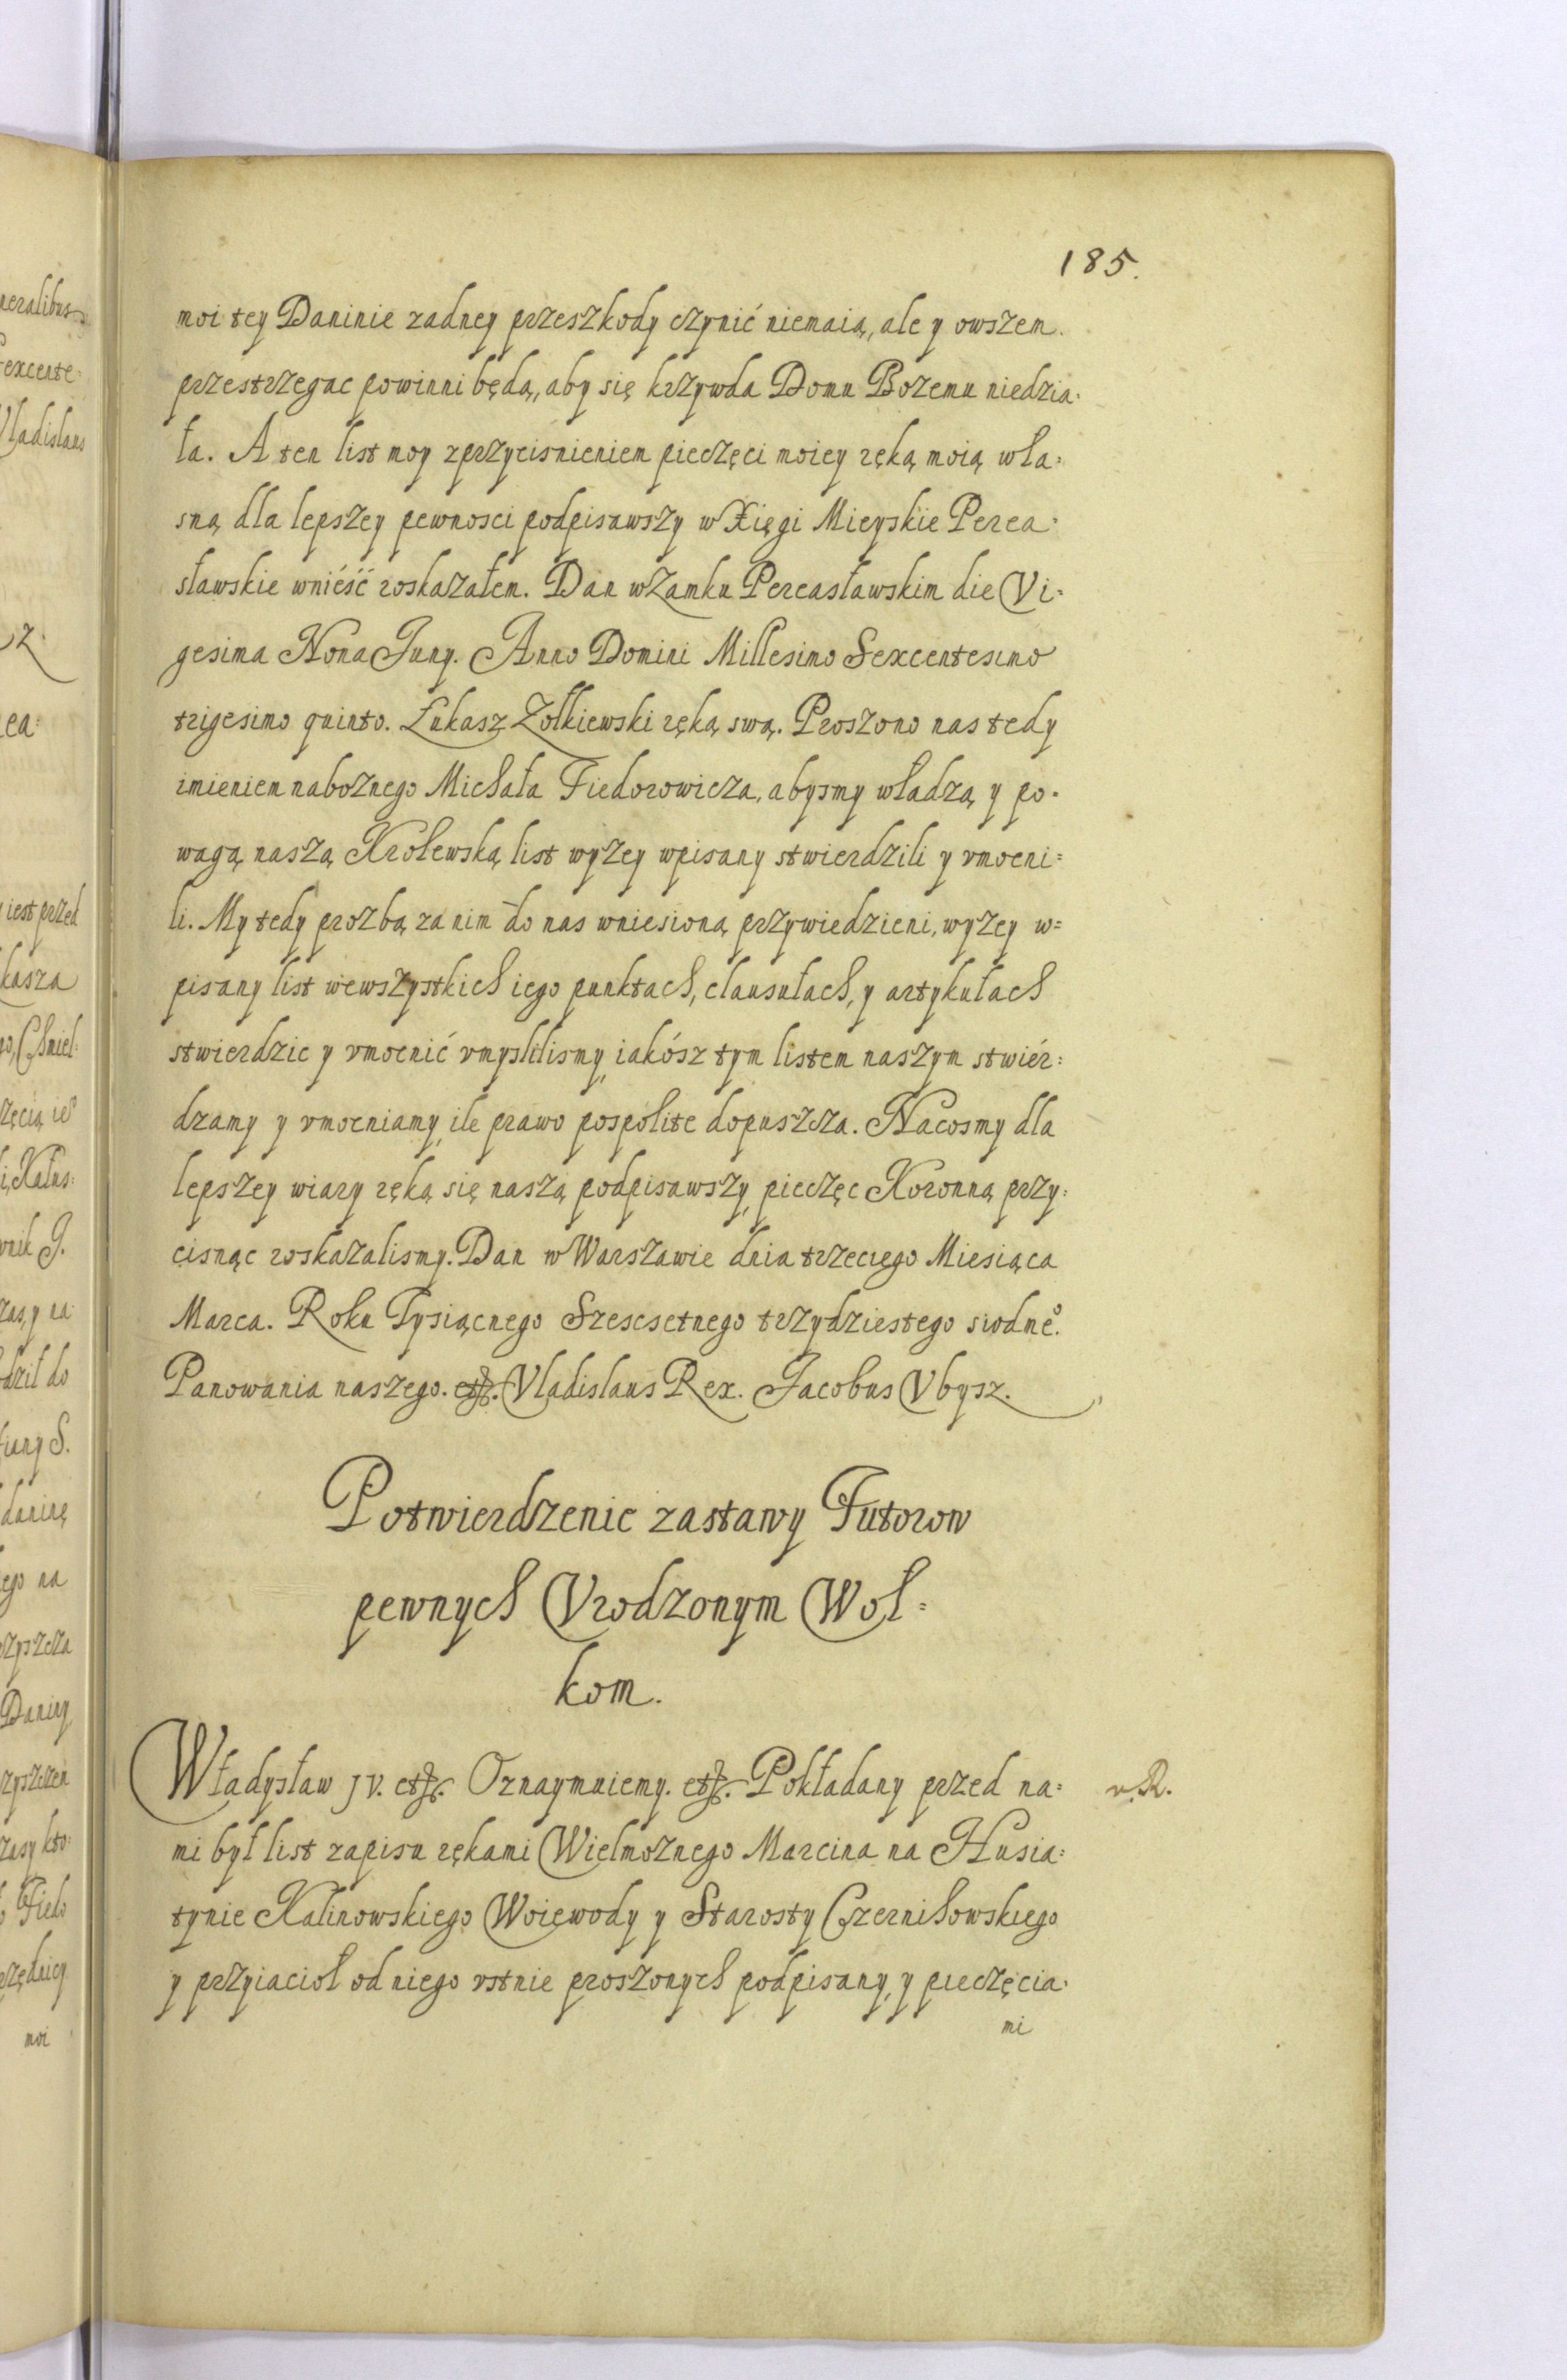 185.
moi tey Daninie zadney przeszkody czynić niemaią, ale y owszem
przestrzegac powinni będą, aby się krzywda Domu Bozemu niedzia=
ła. A ten list moy zprzycisnieniem pieczęci moiey ręką moią wła=
sną dla lepszey pewnosci podpisawszy w Xięgi Mieyskie Perea=
sławskie wnieść roskazałem. Dan wZamku Pereasławskim die Vi=
gesima Nona Juny. Anno Domini Millesimo Sexcentesimo
trigesimo quinto. Łukasz Zołkiewski ręką swą. Proszono nas tedy
imieniem naboznego Michała Fiedorowicza, abysmy władzą y po=
wagą naszą Krolewską list wyzey wpisany stwierdzili y vmocni=
li. My tedy prozbą za nim do nas wniesioną przywiedzieni, wyzey w=
pisany list wewszystkich iego punktach, clausułach, y artykułach
stwierdzic y vmocnić vmyslilismy, iakósz tym listem naszym stwiér=
dzamy y vmocniamy, ile prawo pospolite dopuszcza. Nacosmy dla
lepszey wiary ręką się naszą podpisawszy, pieczęc Koronną przy=
cisnąc roskazalismy. Dan w Warszawie dnia trzeciego Miesiąca
Marca. Roku Tysiącnego Szescsetnego trzydziestego siodmeº.
Panowania naszego. etc. Vladislaus Rex. Jacobus Vbysz.
Potwierdzenie zastawy Futorow
pewnych Vrodzonym Woł=
kom.
Władysław JV. etc. Oznaymuiemy. etc. Pokładany przed na= v. R.
mi był list zapisu rękami Wielmoznego Marcina na Husia=
tynie Kalinowskiego Woiewody y Starosty Czernihowskiego
y przyiacioł od niego vstnie proszonych podpisany, y pieczęcia=
mi